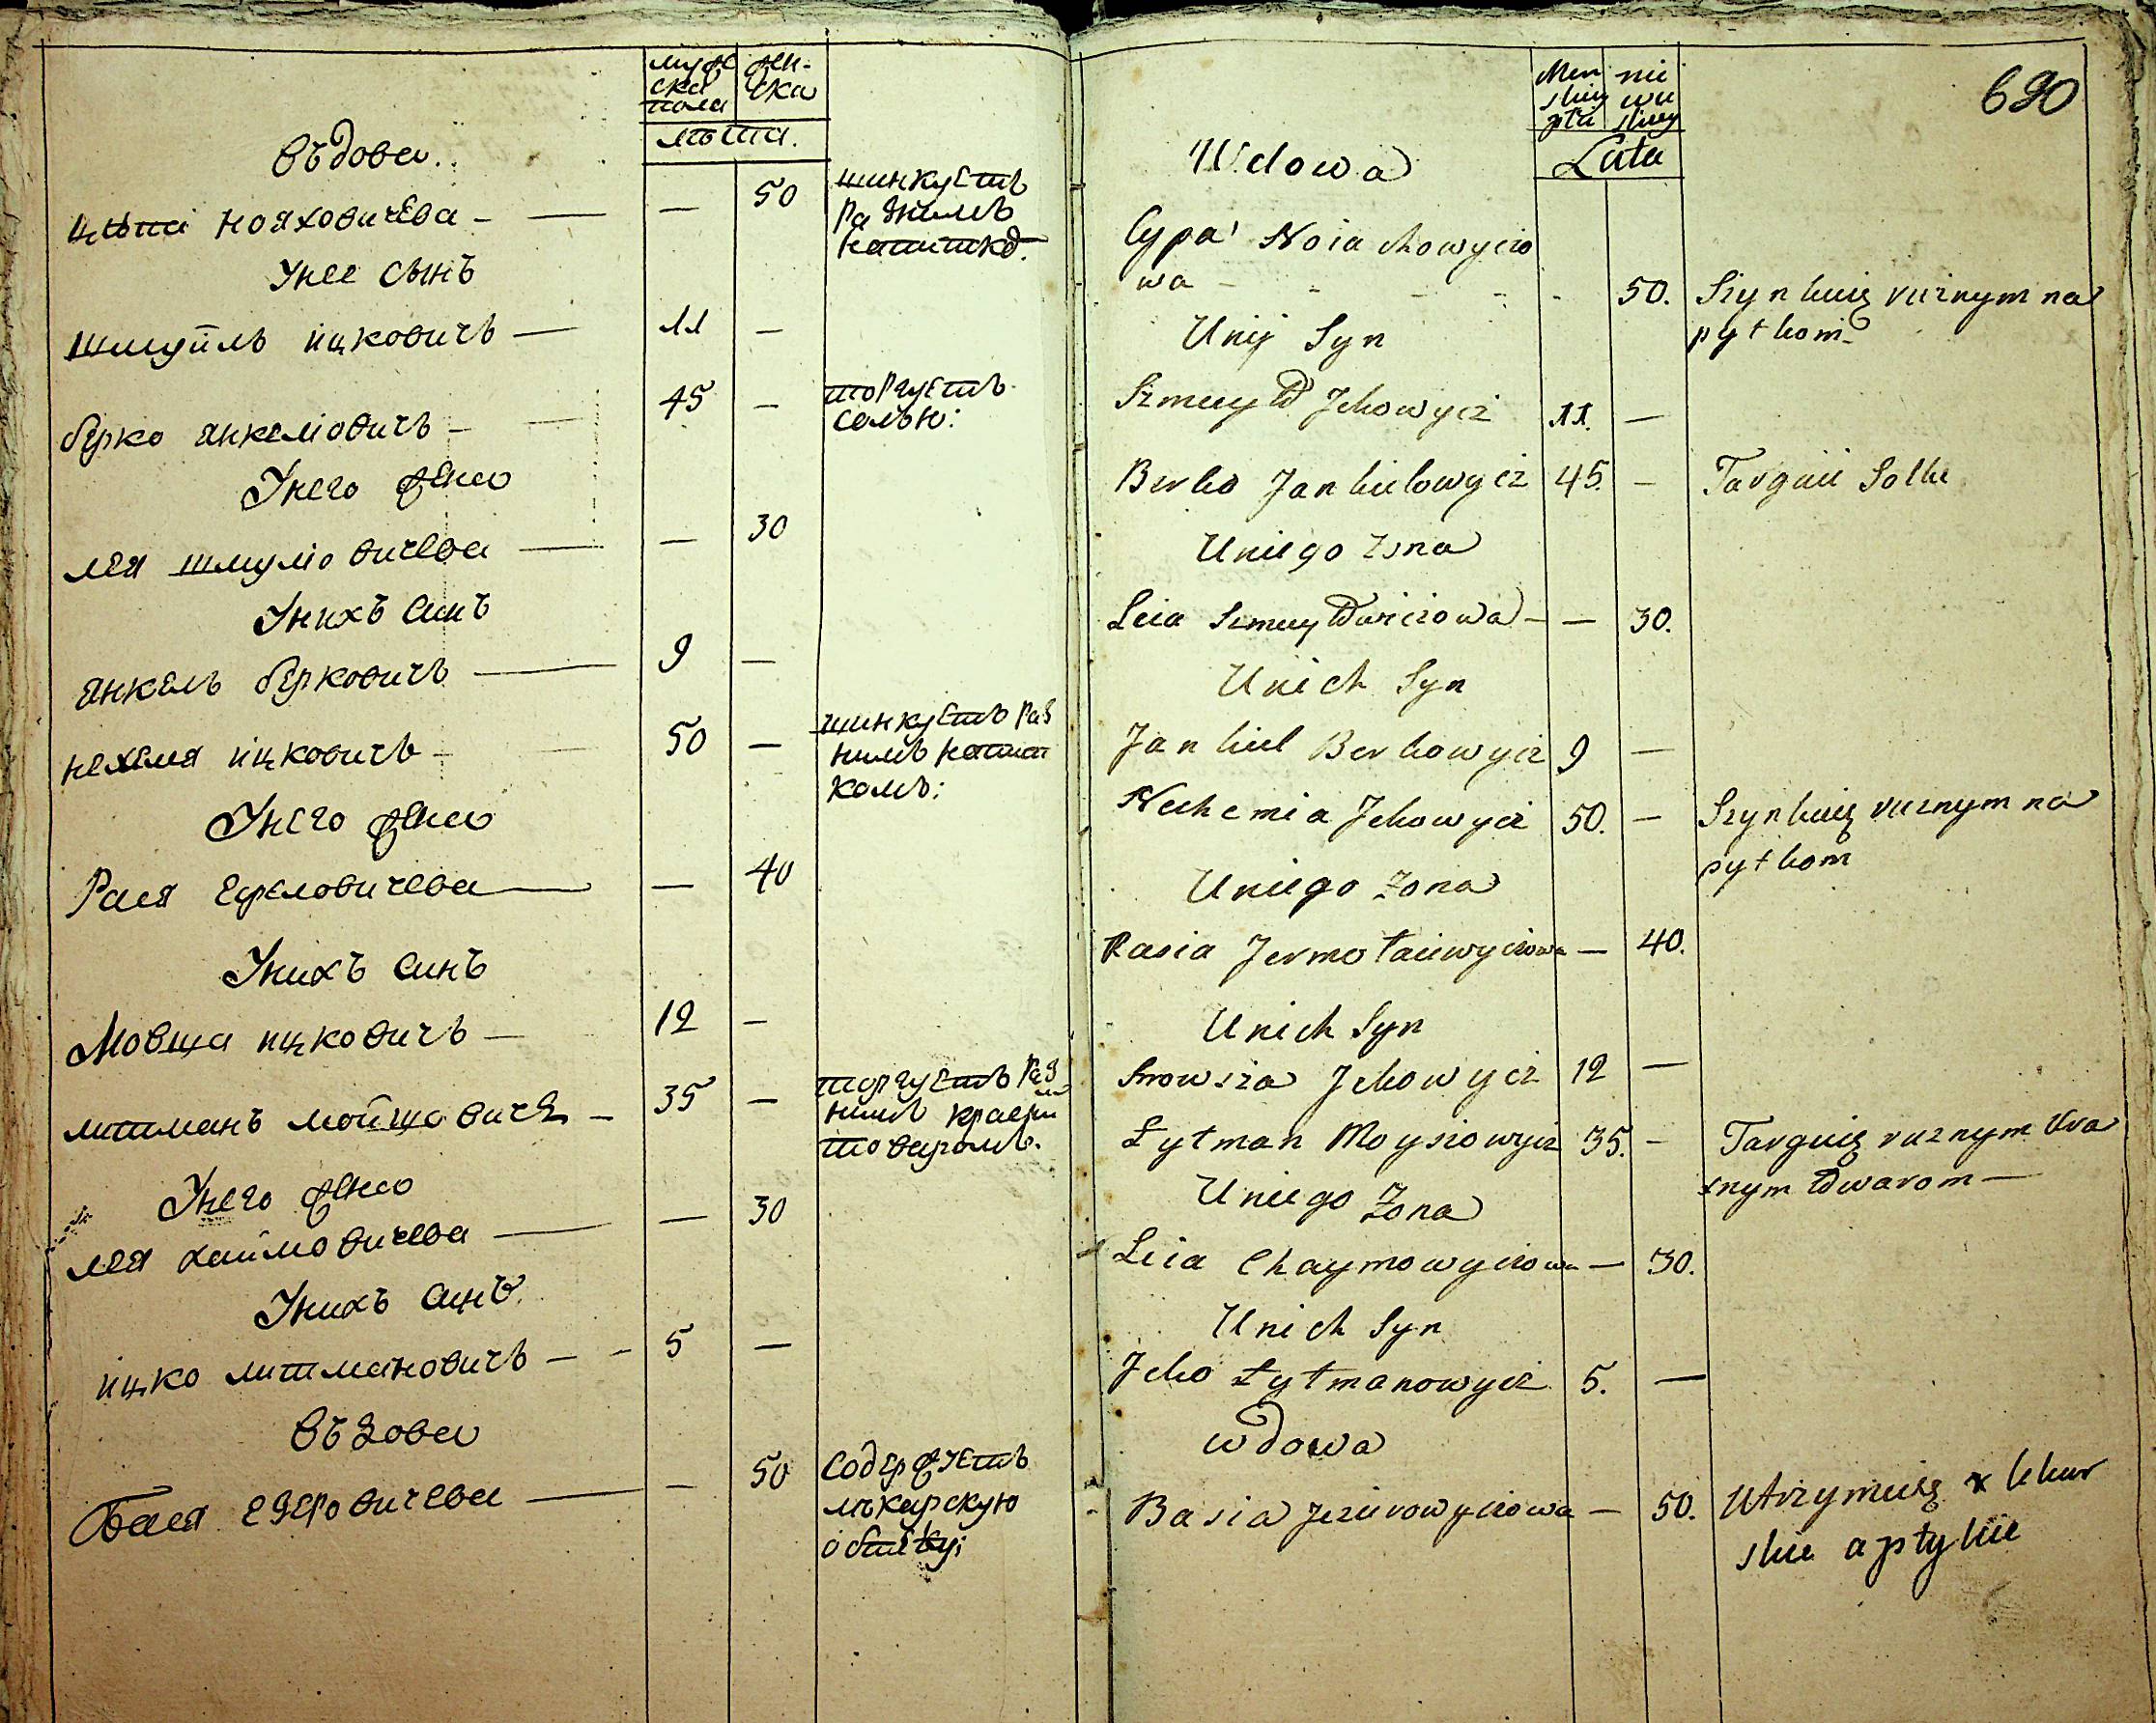 мужеска пола
женска
лѣта.
Въдова.
Ципа Нояховичева — — 50 шинкуетъ
разнимъ
напитко.
Унее сынъ
Шмуйль Ицковичъ — 11 —
Берко Янкеліовичъ — 45 — торгуетъ
солью:
Унего жена
Лея Шмуліовичева — — 30
Унихъ синъ
Янкель Берковичъ — 9 —
Нехемя Ицковичъ — 50 — шинкуетъ раз
нимъ напит
комъ:
Унего жена
Рася — — 40
Унихъ синъ
Мовша Ицковичъ — 12 —
Литманъ Мойшовичъ — 35 — торгуетъ раз
нимъ красним
товаромъ.
Унего жена
Лея Хаймовичева — — 30
Унихъ синъ
Ицко Литмановичъ — — 5 —
Въдова
Бася Езеровичева — — 50 содержуетъ
лѣкарскую
Men
skiey
płci
nie
wie
skiey
Lata
690
Wdowa
Cypa Noiachowyczo
wa - - - - - 50. Szynkuię rużnym na
pytkom
Uniy Syn
Szmuyło Jckowycz 11. —
Berko Jankielowycz 45. — Targuie Solie
Uniego Żona
Leia Szmuyłowiczowa - — 30.
Unich Syn
Jankiel Berkowycz 9 —
Nechemia Jckowycz 50. — Szynkuię rużnym na
pytkom
Uniego Żona
Rasia Jermołaiewyczowa — 40.
Unich Syn
Mowsza Jckowycz 12 —
Łytman Moyszowycz 35. — Targuię rużnym kra
snym towarom —
Uniego Żona
Leia Chaymowyczowa — 30.
Unich Syn
Jcko Łytmanowycz 5. —
Wdowa
Basia Jezierowyczowa — 50. Utrzymuię lekar
skie aptykie